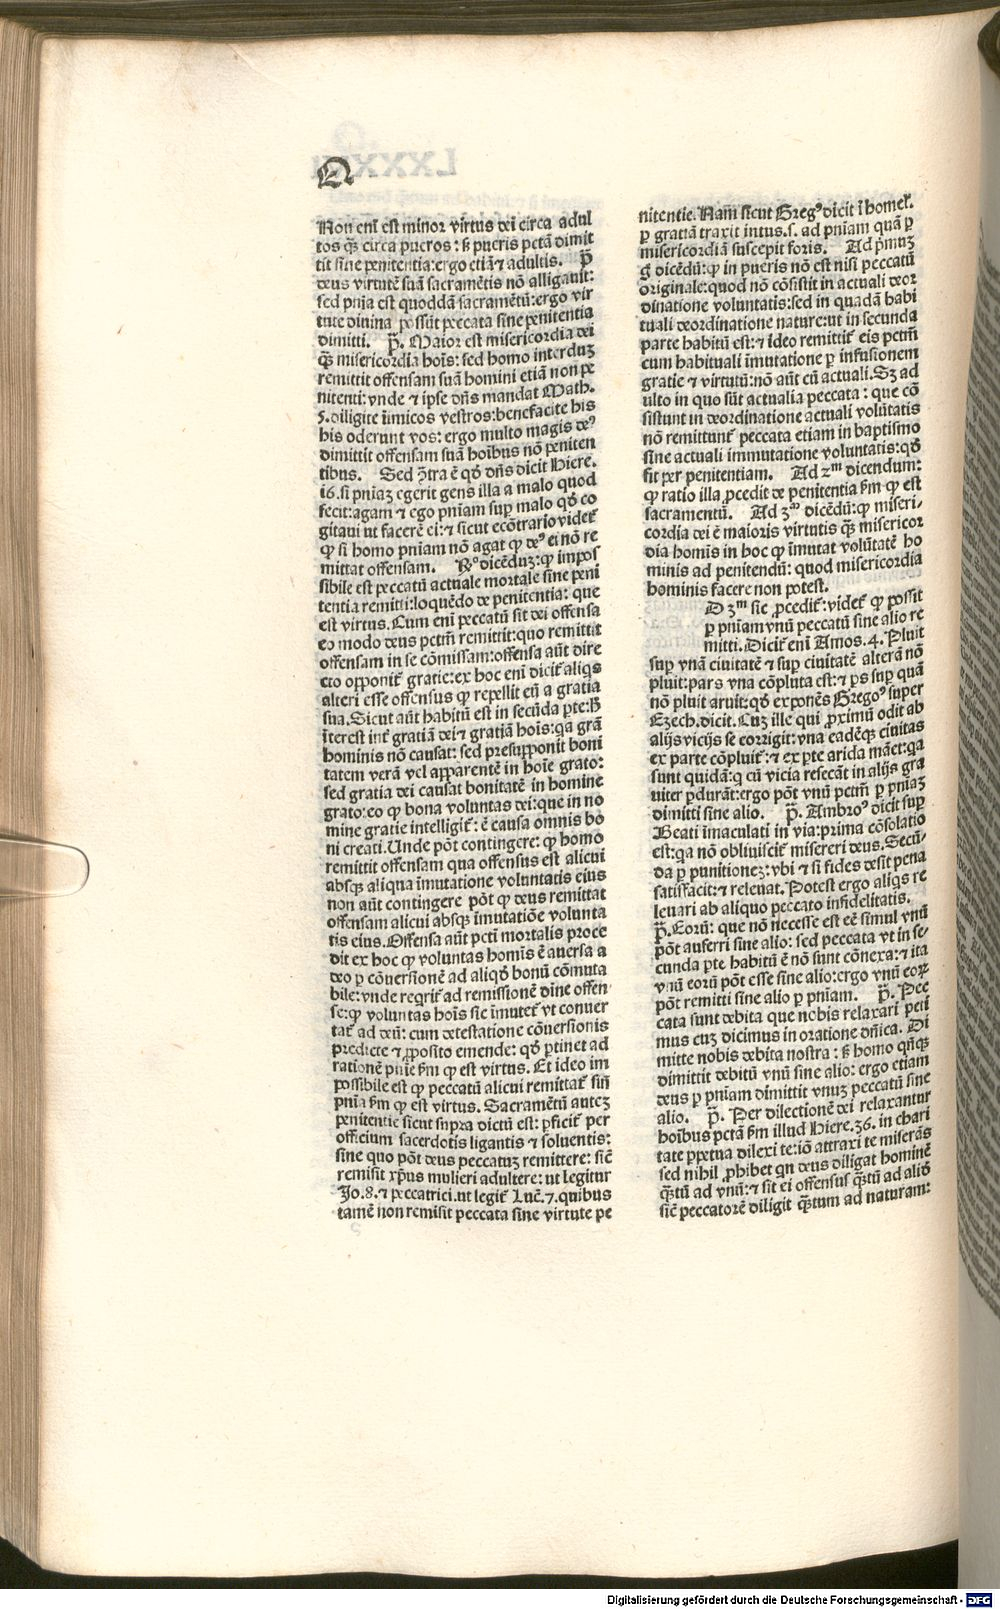 Q
Non enĩ est minor virtus dei circa adul
tos q̃ꝫ circa pueros: ß pueris pctã dimit
tit sine penitentia: ergo etiã ⁊ adultis. P̃
deus virtutẽ suã sacramẽtis nõ alligauit:
sed pnĩa est quoddã sacramẽtũ: ergo vir
tute diuina possũt peccata sine penitentia
dimitti. P̃. Maior est misericordia dei
q̃ꝫ misericordia hoĩs: sed homo interduꝫ
remittit offensam suã homini etiã non pe
nitenti: vnde ⁊ ipse dñs mandat Math.
5. diligite inimicos vestros: benefacite his
his oderunt vos: ergo multo magis deꝰ
dimittit offensam suã hoĩbus nõ peniten
tibus. Sed ꝯ̃tra ẽ qð dñs dicit Hiere.
i6. si pniaꝫ egerit gens illa a malo quod
fecit: agam ⁊ ego pniam suꝑ malo qð co
gitaui ut facerẽ ei: ⁊ sicut ecõtrario videt̃
ꝙ si homo pniam nõ agat ꝙ deꝰ ei nõ re
mittat offensam. Rꝰ dicẽduꝫ: ꝙ impos
sibile est peccatũ actuale mortale sine peni
tentia remitti: loquẽdo de penitentia: que
est virtus. Cum enĩ peccatũ sit dei offensa
eo modo deus pctm̃ remittit: quo remittit
offensam in se cõmissam: offensa aũt dire
cto opponit̃ gratie: ex hoc enĩ dicit̃ aliqs
alteri esse offensus ꝙ repellit eũ a gratia
sua. Sicut aũt habitũ est in secũda ꝑte: ħ
ĩterest int̃ gratiã dei ⁊ gratiã hoĩs: qa grã
hominis nõ causat: sed presupponit boni
tatem verã vel apparentẽ in hoĩe grato:
sed gratia dei causat bonitatẽ in homine
grato: eo ꝙ bona voluntas dei: que in no
mine gratie intelligit̃: ẽ causa omnis bo
ni creati. Unde põt contingere: ꝙ homo
remittit offensam qua offensus est alicui
absqꝫ aliqua ĩmutatione voluntatis eius
non aũt contingere põt ꝙ deus remittat
offensam alicui absqꝫ ĩmutatiõe volunta
tis eius. Offensa aũt pcti mortalis proce
dit ex hoc ꝙ voluntas homĩs ẽ auersa a
deo ꝑ cõuersionẽ ad aliqð bonũ cõmuta
bile: vnde reqrit̃ ad remissionẽ diuĩe offen
se: ꝙ voluntas hoĩs sic ĩmutet̃ vt conuer
tat̃ ad deũ: cum detestatione cõuersionis
predicte ⁊ ꝓposito emende: qð ꝑtinet ad
rationẽ pnĩe ẜm ꝙ est virtus. Et ideo im
possibile est ꝙ peccatũ alicui remittat̃ sin̄
pnĩa ẜm ꝙ est virtus. Sacramẽtũ auteꝫ
penitentie sicut supra dictũ est: ꝑficit̃ per
officium sacerdotis ligantis ⁊ soluentis:
sine quo põt deus peccatuꝫ remittere: sic̃
remisit xp̃us mulieri adultere: ut legitur
Jo. 8. ⁊ peccatrici. ut legit̃ Luc̃. 7. quibus
tamẽ non remisit peccata sine virtute pe
nitentie. Nam sicut Gregꝰ dicit ĩ homel̃.
ꝑ gratiã traxit intus. s. ad pniam quã ꝑ
misericordiã suscepit foris. Ad pꝛ̃muꝫ
g̊ dicẽdũ: ꝙ in pueris nõ est nisi peccatũ
originale: quod nõ cõsistit in actuali deor
dinatione voluntatis: sed in quadã habi
tuali deordinatione nature: ut in secunda
parte habitũ est: ⁊ ideo remittit̃ eis pctm̃
cum habituali ĩmutatione ꝑ infusionem
gratie ⁊ virtutũ: nõ aũt cũ actuali. Sꝫ ad
ulto in quo sũt actualia peccata: que cõ
sistunt in deordinatione actuali volũtatis
nõ remittunt̃ peccata etiam in baptismo
sine actuali immutatione voluntatis: qð
fit per penitentiam. Ad 2ᵐ dicendum:
ꝙ ratio illa ꝓcedit de penitentia ẜm ꝙ est
sacramentũ. Ad 3ᵐ dicẽdũ: ꝙ miseri-
cordia dei ẽ maioris virtutis q̃ꝫ misericor
dia homĩs in hoc ꝙ ĩmutat volũtatẽ ho
minis ad penitendũ: quod misericordia
hominis facere non potest.
D 3ᵐ sic ꝓcedit̃: videt̃ ꝙ possit
ꝑ pniam vnũ peccatũ sine alio re
mitti. Dicit̃ enĩ Amos. 4. Pluit
suꝑ vnã ciuitatẽ ⁊ suꝑ ciuitatẽ alterã nõ
pluit: pars vna cõpluta est: ⁊ ꝑs suꝑ quã
nõ pluit aruit: qð exponẽs Gregoꝰ super
Ezech. dicit. Cuꝫ ille qui ꝓximũ odit ab
alijs vicijs se corrigit: vna eadẽqꝫ ciuitas
ex parte cõpluit̃: ⁊ ex ꝑte arida mãet: qa
sunt quidã: q cũ vicia resecãt in alijs gra
uiter ꝑdurãt: ergo põt vnũ pctm̃ ꝑ pniaꝫ
dimitti sine alio. P̃. Ambroꝰ dicit suꝑ
Beati ĩmaculati in via: prima cõsolatio
est: qa nõ obliuiscit̃ misereri deus. Secũ-
da ꝑ punitioneꝫ: vbi ⁊ si fides desit pena
satisfacit: ⁊ releuat. Potest ergo aliqs re
leuari ab aliquo peccato infidelitatis.
P̃. Eorũ: que nõ necesse est eẽ simul vnũ
põt auferri sine alio: sed peccata vt in se-
cunda ꝑte habitũ ẽ nõ sunt cõnexa: ⁊ ita
vnũ eorũ põt esse sine alio: ergo vnũ eoꝝ
põt remitti sine alio ꝑ pniam. P̃. Pec
cata sunt debita que nobis relaxari peti
mus cuꝫ dicimus in oratione dñica. Di
mitte nobis debita nostra: ß homo qñqꝫ
dimittit debitũ vnũ sine alio: ergo etiam
deus ꝑ pniam dimittit vnuꝫ peccatũ sine
alio. P̃. Per dilectionẽ dei relaxantur
hoĩbus pctã ẜm illud Hiere. 36. in chari
tate ꝑpetua dilexi te: iõ attraxi te miserãs
sed nihil ꝓhibet qn deus diligat hominẽ
q̃ꝫtũ ad vnũ: ⁊ sit ei offensus q̃ꝫtũ ad alið
sic̃ peccatorẽ diligit q̃ꝫtum ad naturam:
Digitalisierung gefördert durch die Deutsche Forschungsgemeinschaft - DFG